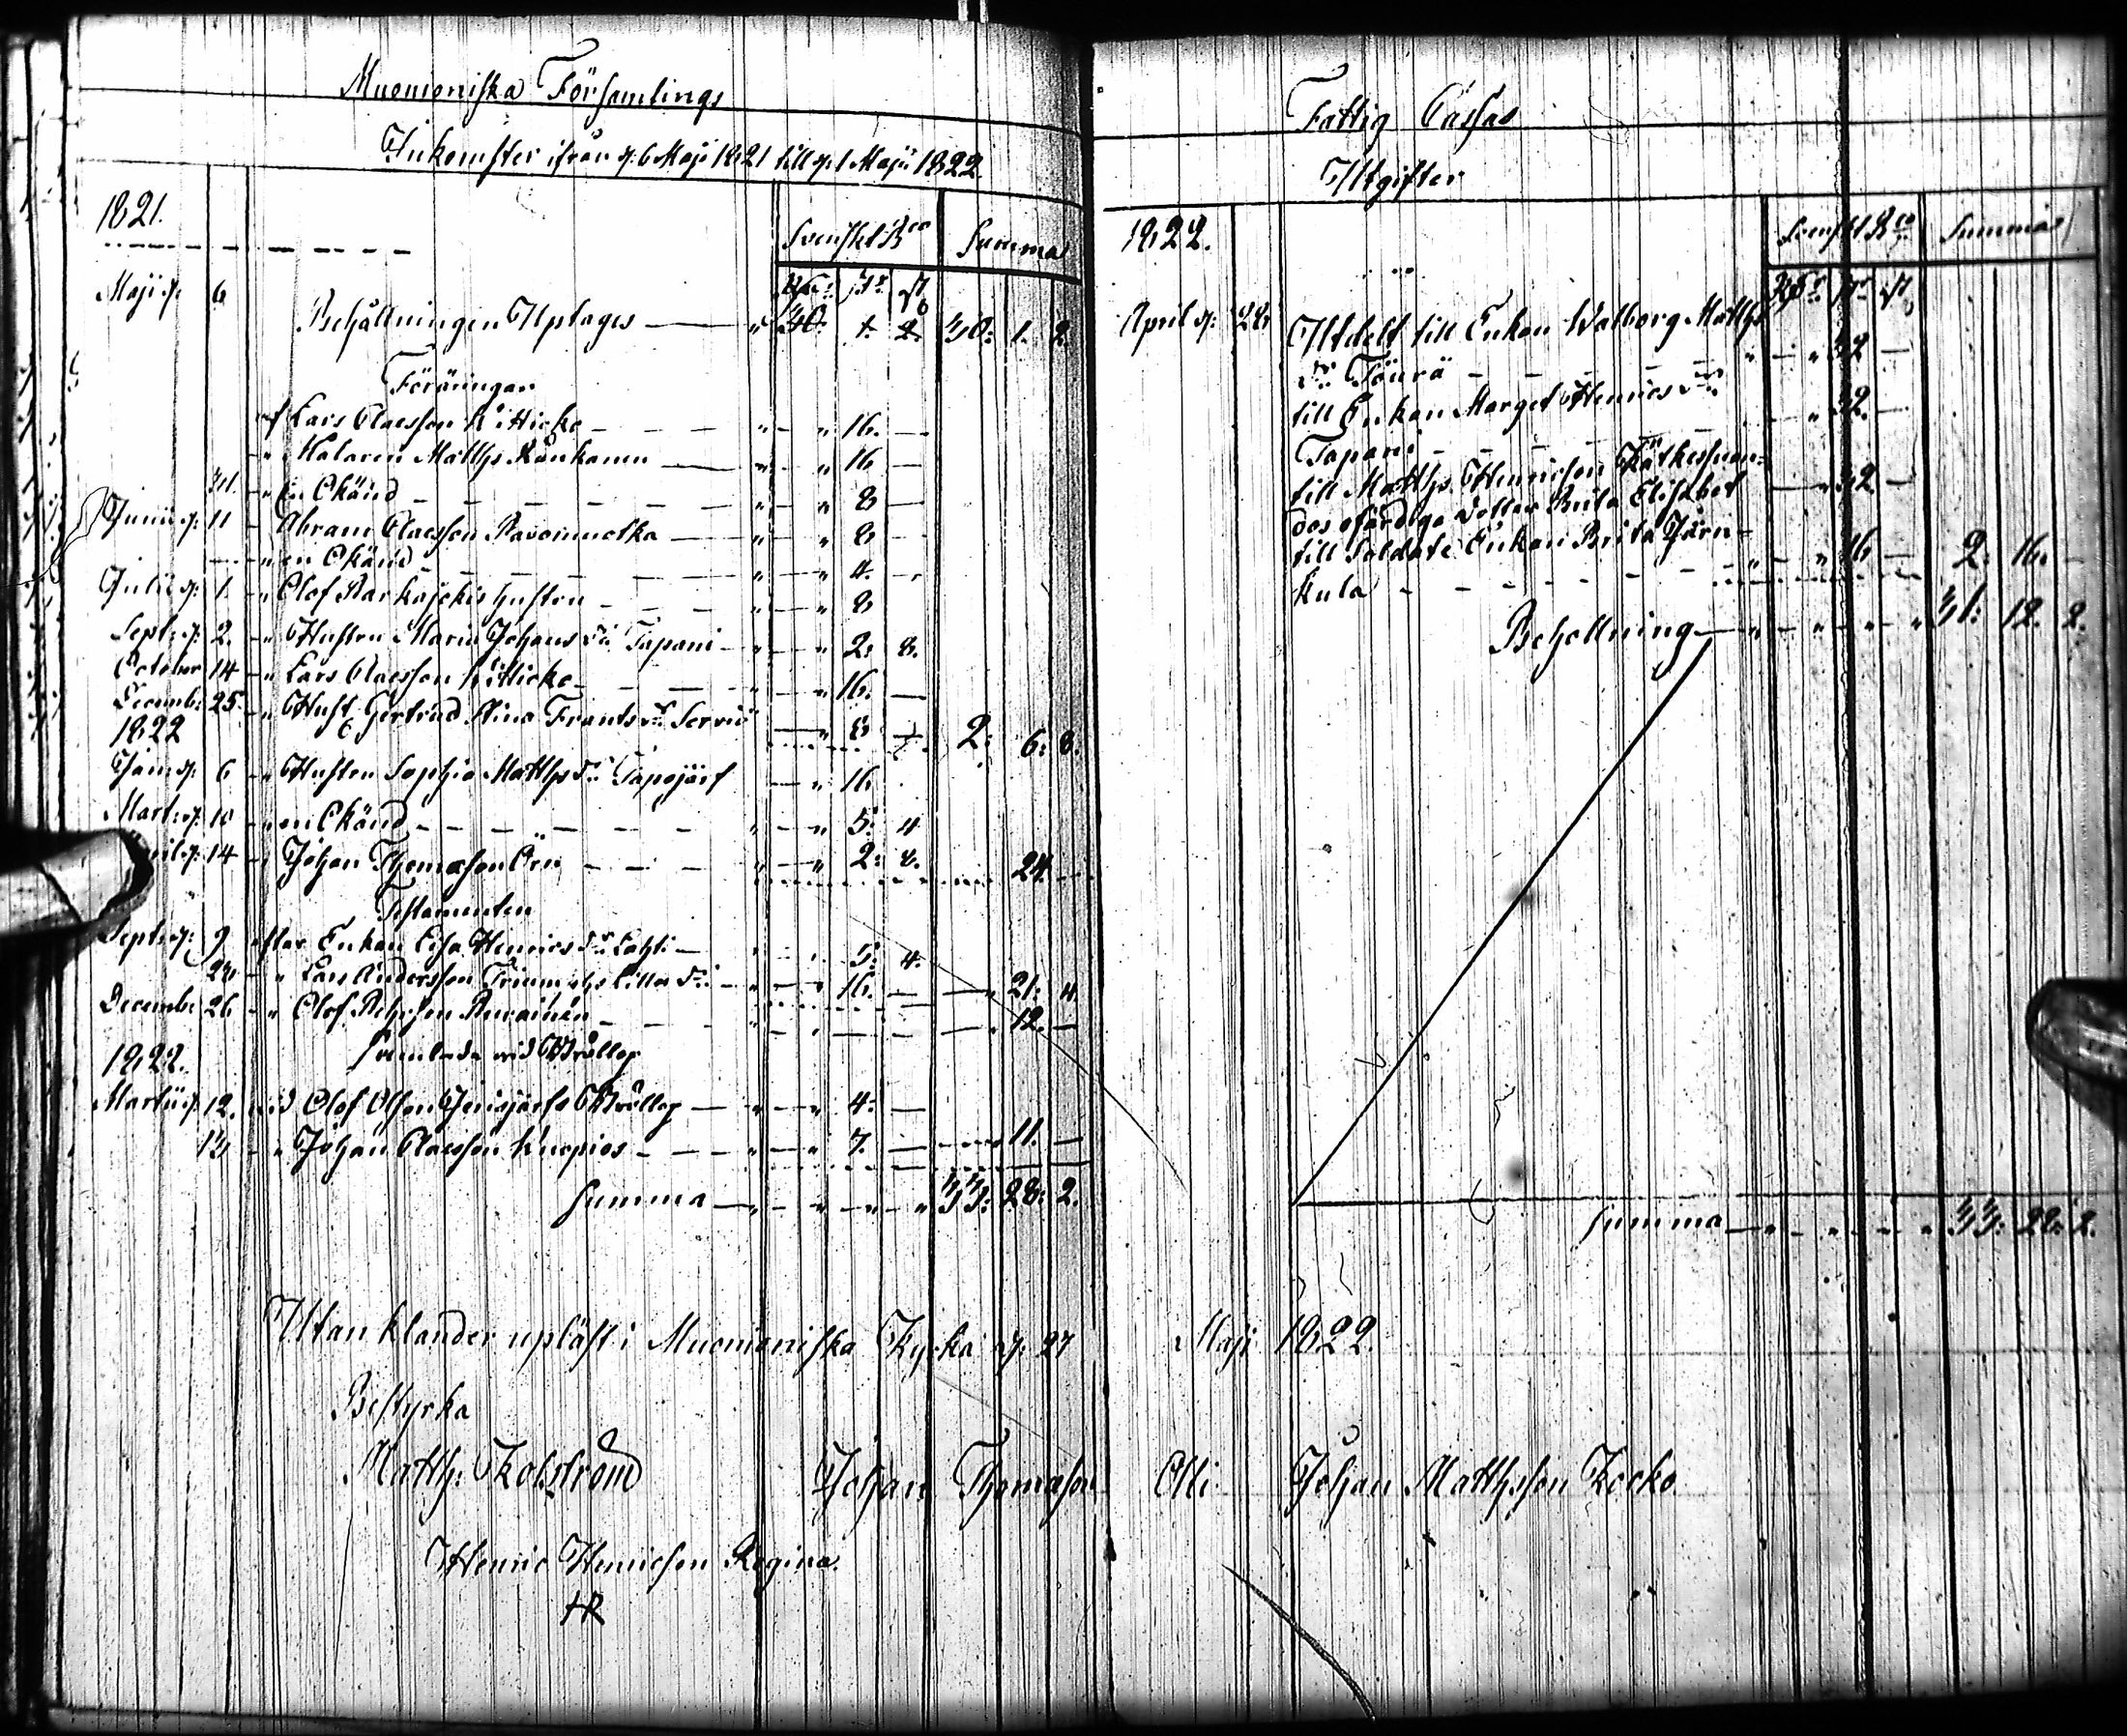 Muonioniska Församlings
Inkomster ifrån d: 6 Maji 1821 till d: 1 Maji 1822.
1821.
Svenskt Bco Summa
Maji d: 6 Behållningen Uptages 30: 1. 2. 30: 1. 2.
Föräringar
af Lars Claesson Kitticko 16. —
" Målaren Matths 16 —
" En Okänd 8 —
Junii d: 11 Abram Claesson 8 —
" en Okänd 4. —
Julii d: 1. " Olof hustru 8
Sept: d: 2. " Hustru Maria Johans Dr Tapani 2: 8.
October 14 " Lars Claesson Kitticko 16. —
Decemb: 25. " Hust. Gertrud Stina Frants Dr 8 — 2: 6: 8.
1822
Jan: d: 6 " Hustru Sophia Matths Dr Tapojärf 16
Mart: d: 10 " en Okänd 5: 4
d: 14 " Johan Thomasson Örn 2: 8. 24. —
Testamenten
Sept: d: 9 efter Enkan Lisa Henrics Dr Lahti 5: 4.
" Lars Andersson 16. — 21: 4.
Decemb: 26 " Olof 12. —
Samlade vid Bröllop
1822.
Martii d: 12. vid Olof Olsson Jerisjärfs Bröllop 4: —
13 " Johan Claesson Kuopios 7. — 11. —
Summa 33: 28: 2.
Fattig Cassas
Utgifter
1822.
Svenskt Bco Summa
April d: 28 Utdelt till Enkan Walborg Matths
Dr Töurä 32 —
till Enkan Marget Henrics Dr
Tapani 32. —
till Matths Henricson
dos ofärdige dotter Brita Elisabet 32 —
till Soldate Enkan Brita Järn-
kula 16 — 2: 16. —
Behollning 31: 12. 2.
Summa 33: 28: 2.
Utan klander upläst i Muonioniska Kyrka d: 27 Maji 1822.
Bestyrka
Matth: Kolström Johan Thomasson Olli Johan Matthsson Kocko
Henric Henricson Regina
HR